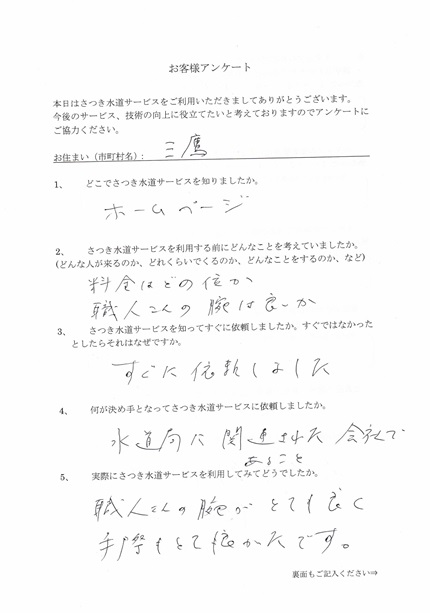 お客様アンケート
本日はさつき水道サービスをご利用いただきましてありがとうございます。
今後のサービス、技術の向上に役立てたいと考えておりますのでアンケートに
ご協力ください。
お住まい（市町村名）： 三鷹
1、 どこでさつき水道サービスを知りましたか。
ホームページ
2、 さつき水道サービスを利用する前にどんなことを考えていましたか。
(どんな人が来るのか、どれくらいでくるのか、どんなことをするのか、など)
料金はどの位か
職人さんの腕は良いか
3、 さつき水道サービスを知ってすぐに依頼しましたか。すぐではなかった
としたらそれはなぜですか。
すぐに依頼しました
4、 何が決め手となってさつき水道サービスに依頼しましたか。
水道局に関連された会社で
あること
5、 実際にさつき水道サービスを利用してみてどうでしたか。
職人さんの腕がとても良く
手際もとても良かったです。
裏面もご記入ください⇒